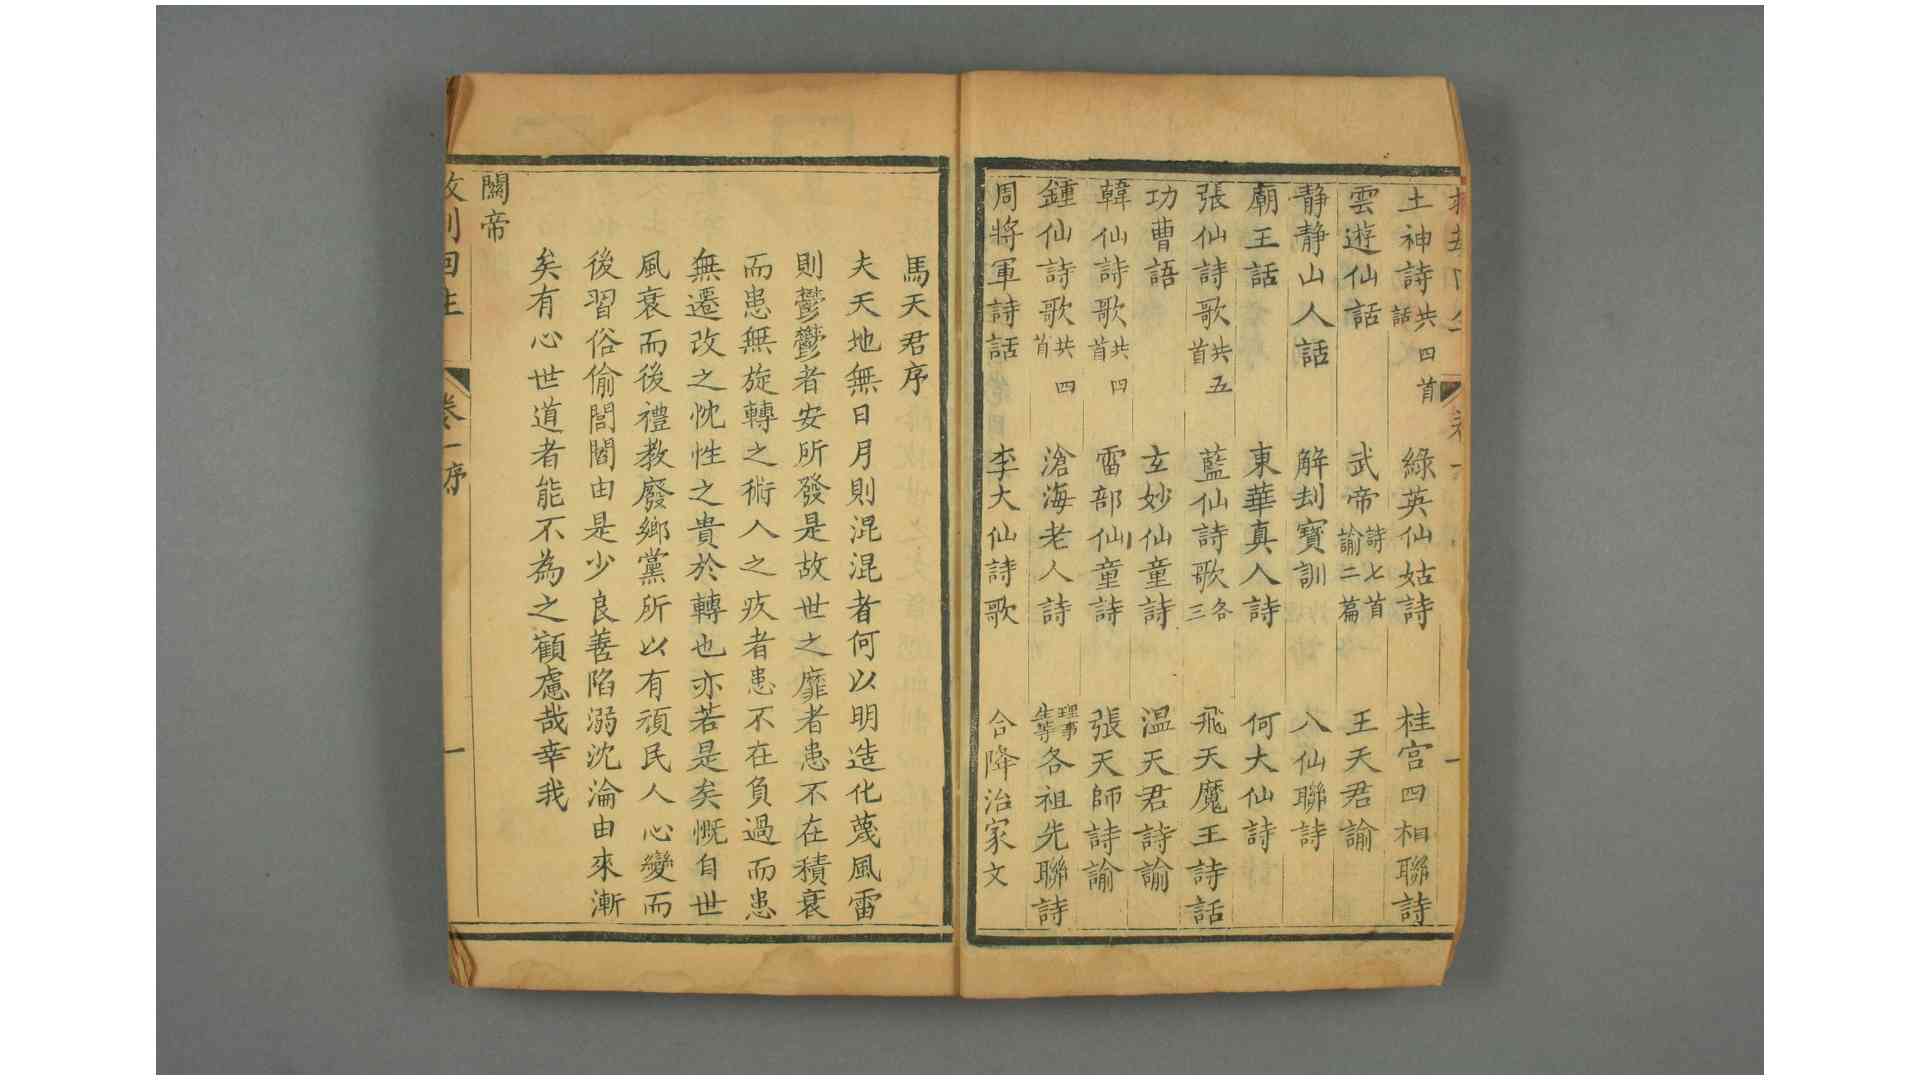 土神詩共四首話 綠英仙姑詩 桂宮四相聯詩
雲遊仙話 武帝詩七首諭二篇 王天君諭
靜靜山人話 解刼寶訓 八仙聯詩
廟王話 東華真人詩 何大仙詩
張仙詩歌共五首 藍仙詩歌各三 飛天魔王詩話
功曹語 玄妙仙童詩 温天君詩諭
韓仙詩歌共四首 雷部仙童詩 張天師詩諭
鍾仙詩歌共四首 滄海老人詩 理事生等各祖先聯詩
周將軍詩話 李大仙詩歌 合降治家文
馬天君序
夫天地無日月則混混者何以明造化蔑風雷
則鬱鬱者安所發是故世之靡者患不在積衰
而患無旋轉之術人之疚者患不在負過而患
無遷改之忱性之貴於轉也亦若是矣慨自世
風衰而後禮教廢鄉黨所以有頑民人心變而
後習俗偷閭閻由是少良善陷溺沈淪由來漸
矣有心世道者能不為之顧慮哉幸我
關帝
回生 卷一序 一